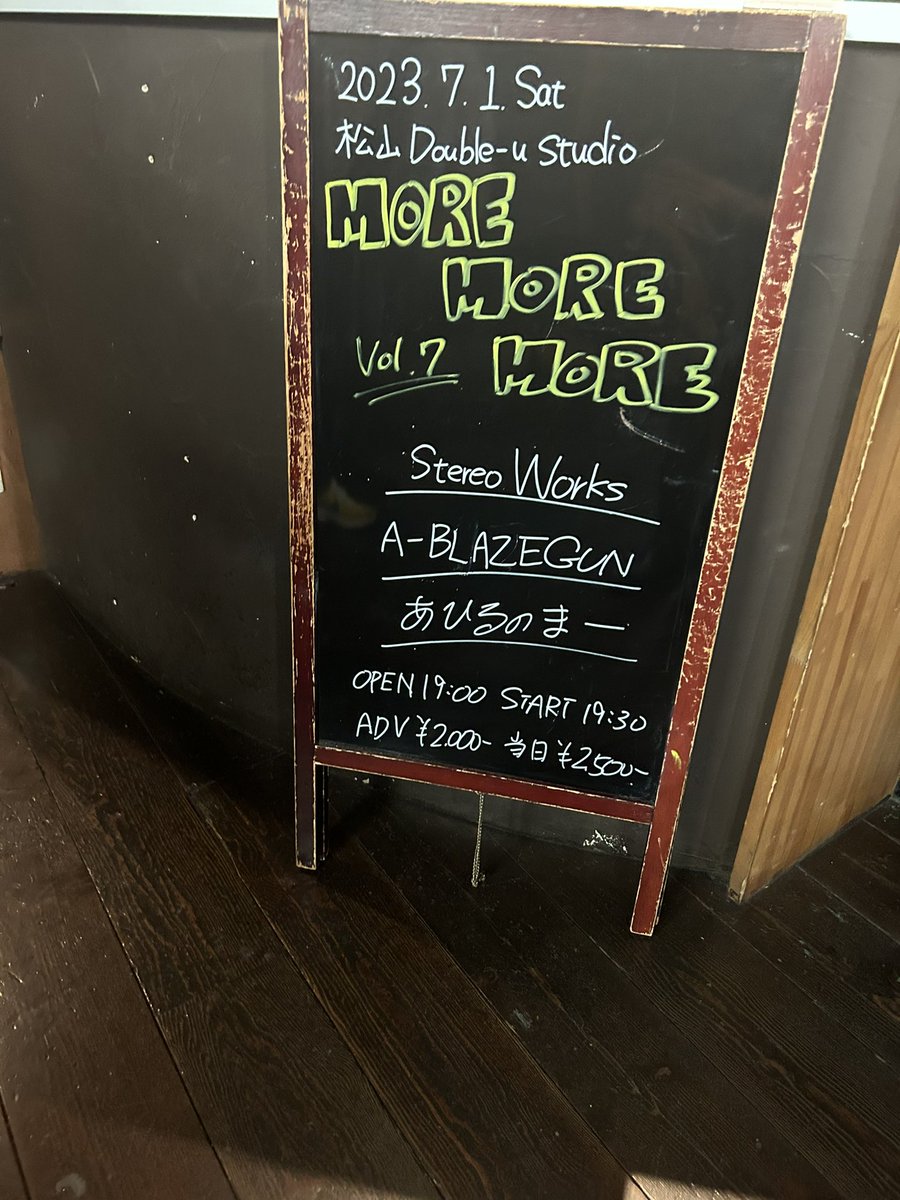 2023.7.1.Sat
松山 Double-u studio
MORE
MORE
Vol.7 MORE
Stereo Works
A-BLAZEGUN
あひるのまー
OPEN 19:00 START 19:30
ADV ¥2.000- 当日 ¥2500-